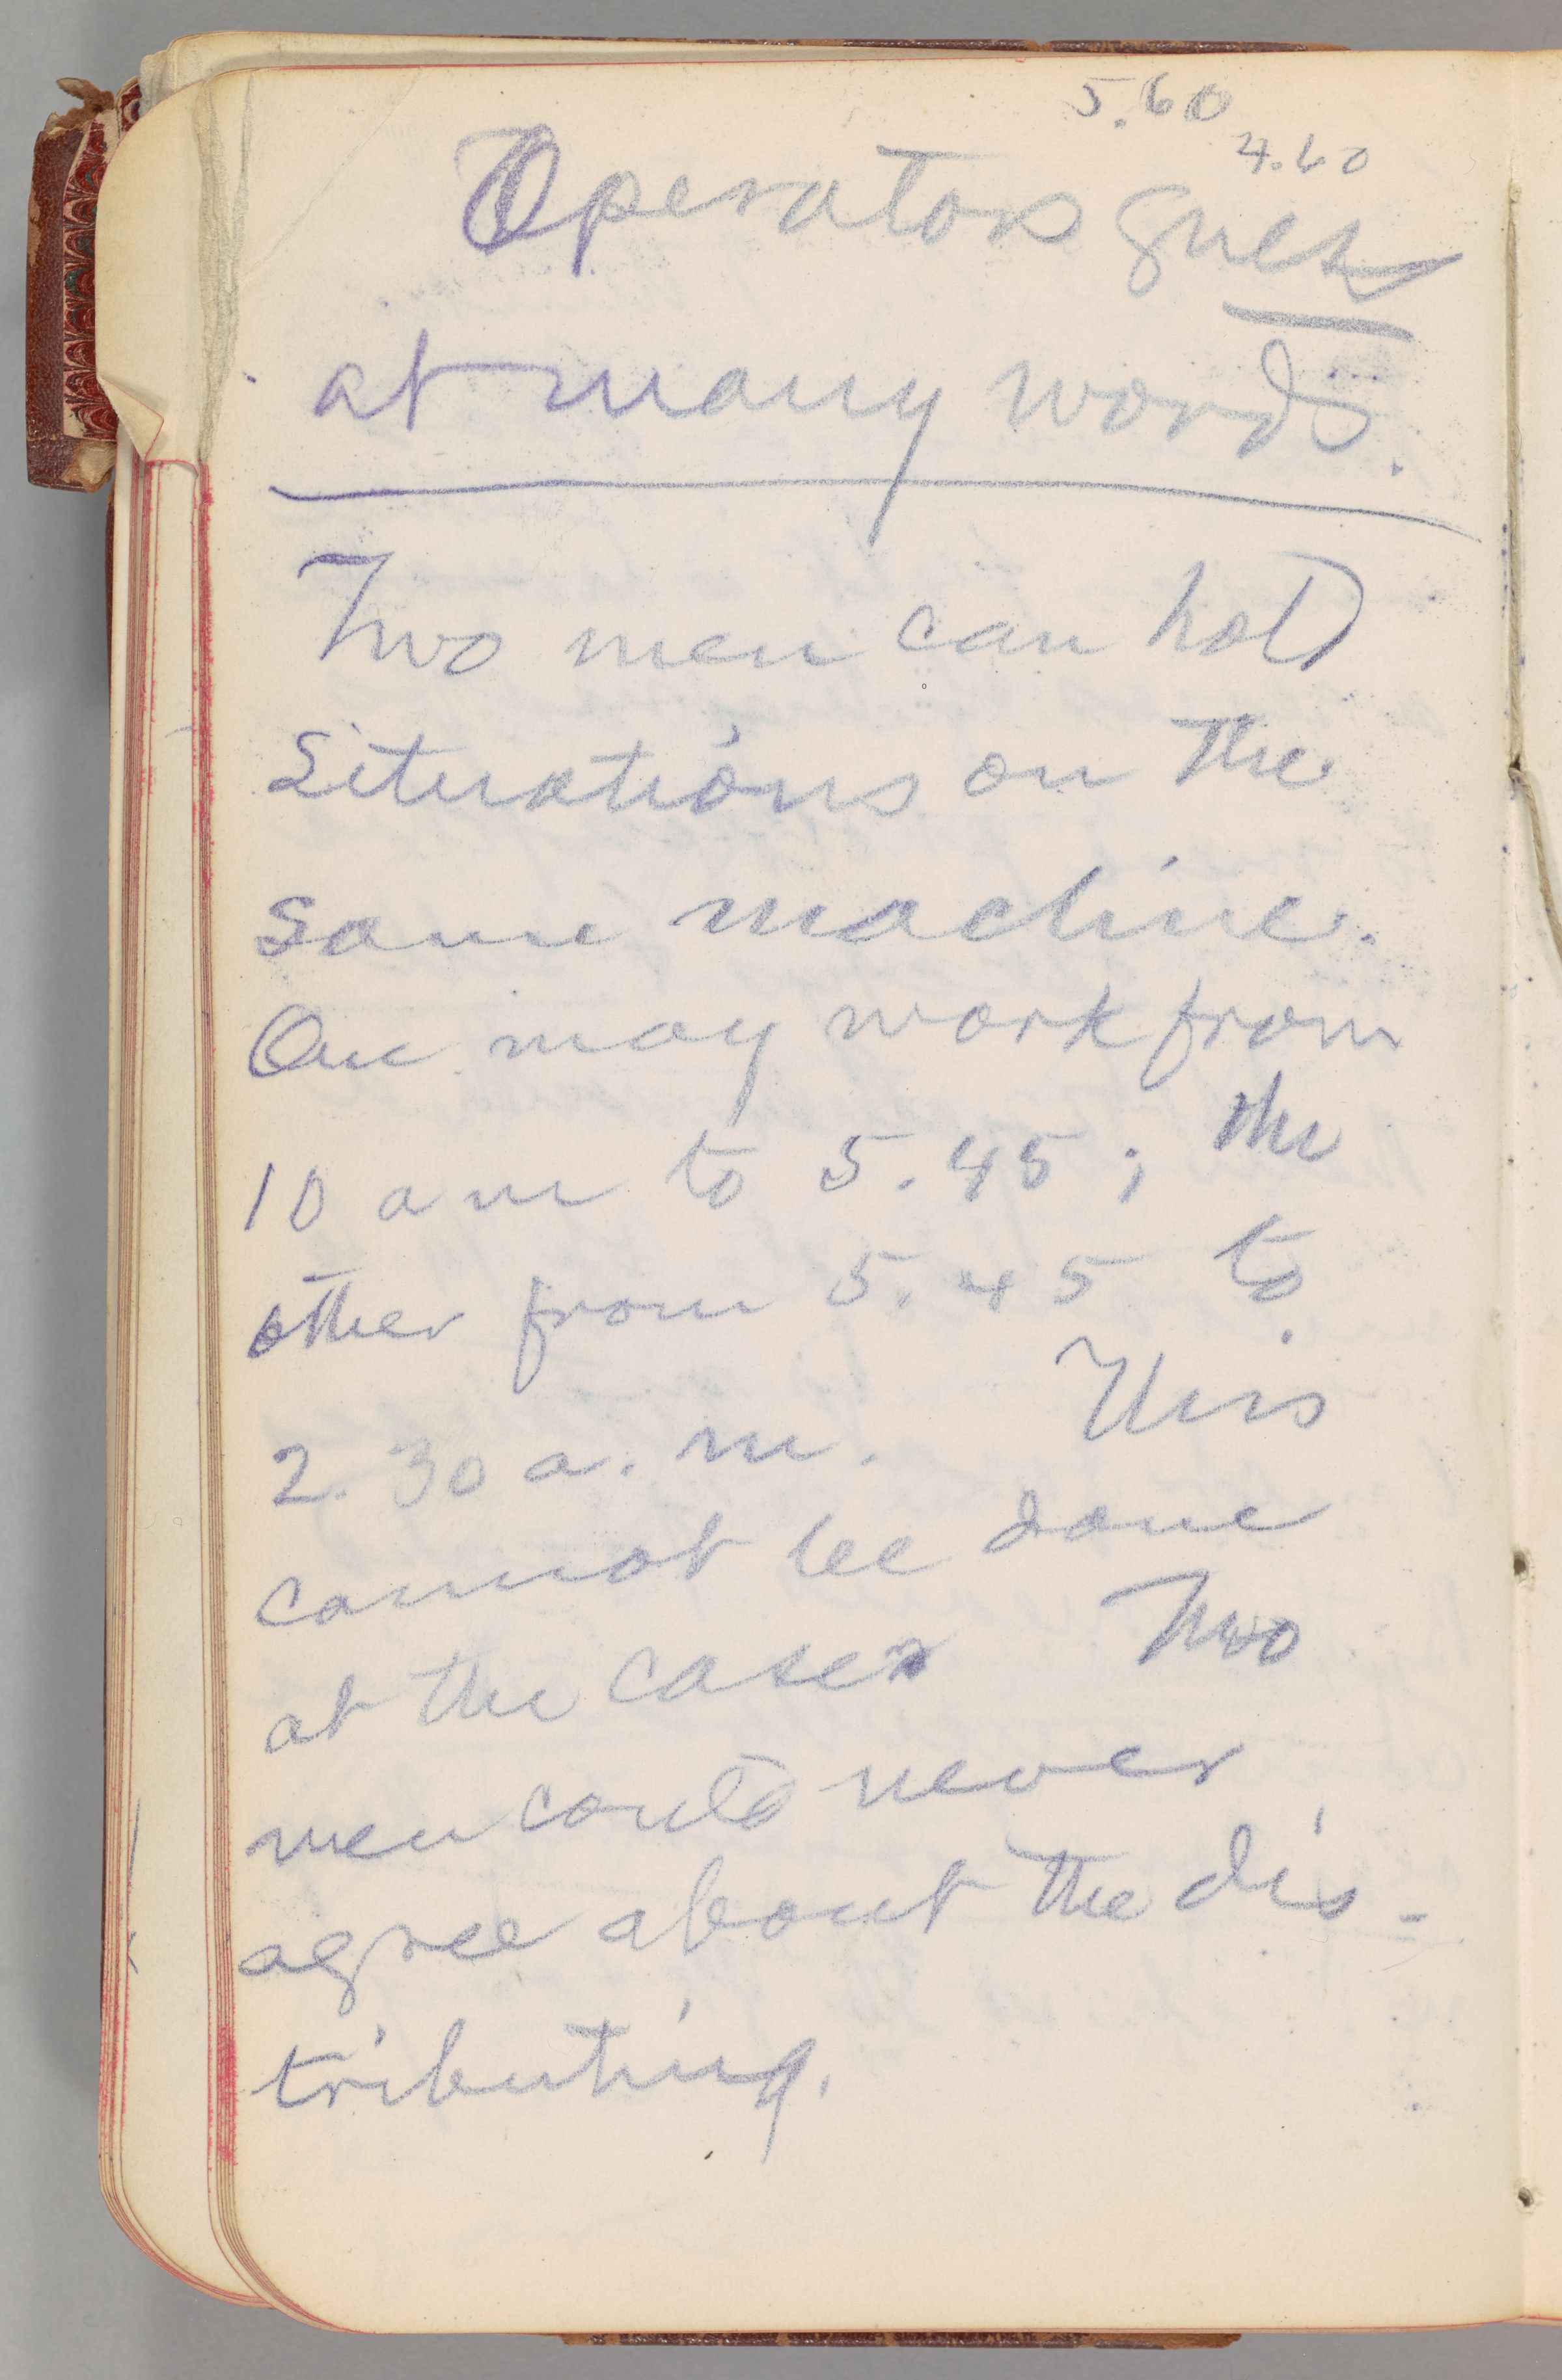 5.60
4.60
Operators guess
at many words.
Two men can hold
situations on the
same machine.
One may work from
10 am to 5.45; the
other from 5.45 to
2.30 a.m. This
cannot be done
at the cases Two
men could never
agree about the dis-
tributing.